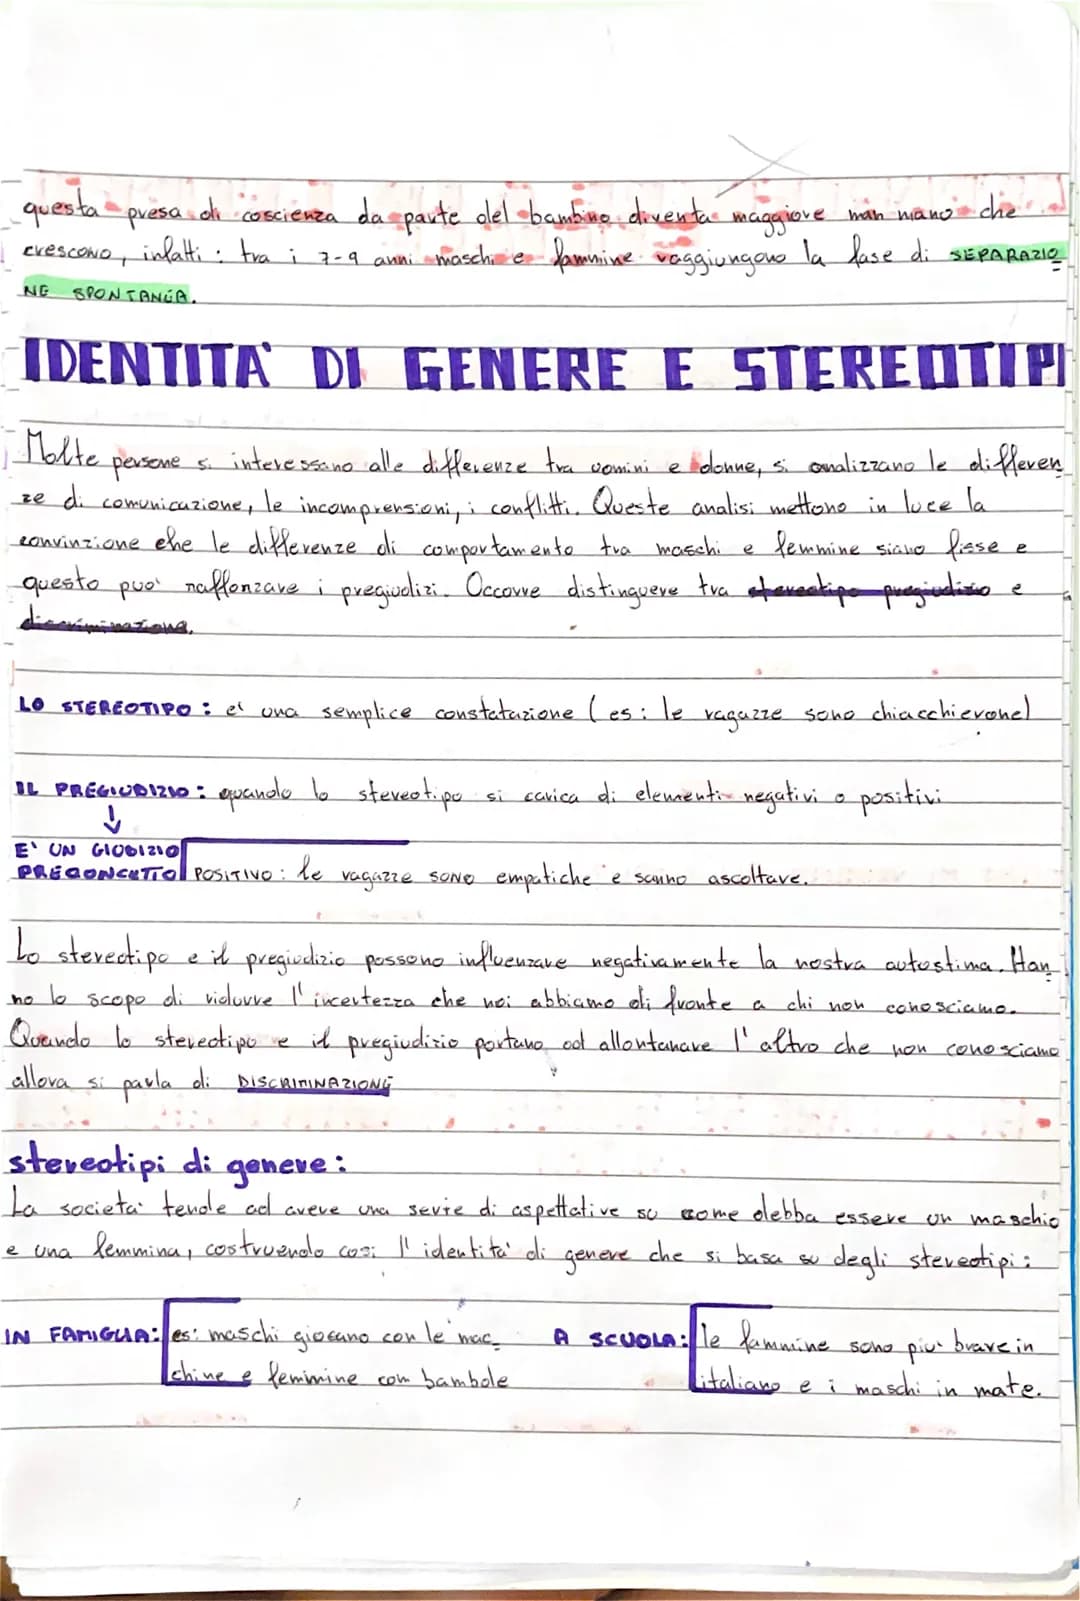 questa presa di coscienza da parte del bambino diventa maggiore man mano che
crescono, infatti : tra i 7-9 anni maschi e fammine raggiungono la fase di SEPARAZIO
NE SPONTANEA.
IDENTITA' DI GENERE E STEREOTIPI
Molte persone si interessano alle differenze tra uomini e donne, si analizzano le differen
ze di comunicazione, le incomprensioni, i conflitti. Queste analisi mettono in luce la
convinzione che le differenze di comportamento tra maschi e femmine siano fisse e
questo puo' rafforzare i pregiudizi. Occorre distinguere tra stereotipo pregiudizio e
discriminazione.
LO STEREOTIPO : e' una semplice constatazione ( es : le ragazze sono chiacchierone)
IL PREGIUDIZIO : quando lo stereotipo si carica di elementi negativi o positivi
↓
E' UN GIUDIZIO
PRECONCETTO POSITIVO : le ragazze sono empatiche e sanno ascoltare.
Lo stereotipo e il pregiudizio possono influenzare negativamente la nostra autostima. Han
no lo scopo di ridurre l'incertezza che noi abbiamo di fronte a chi non conosciamo.
Quando lo stereotipo e il pregiudizio portano ad allontanare l'altro che non conosciamo
allora si parla di DISCRIMINAZIONE
stereotipi di genere :
La societa' tende ad avere una serie di aspettative su come debba essere un maschio
e una femmina, costruendo cosi l'identita' di genere che si basa su degli stereotipi :
IN FAMIGLIA: es: maschi giocano con le mac_ A SCUOLA: le fammine sono piu' brave in
chine e femmine con bambole italiano e i maschi in mate.